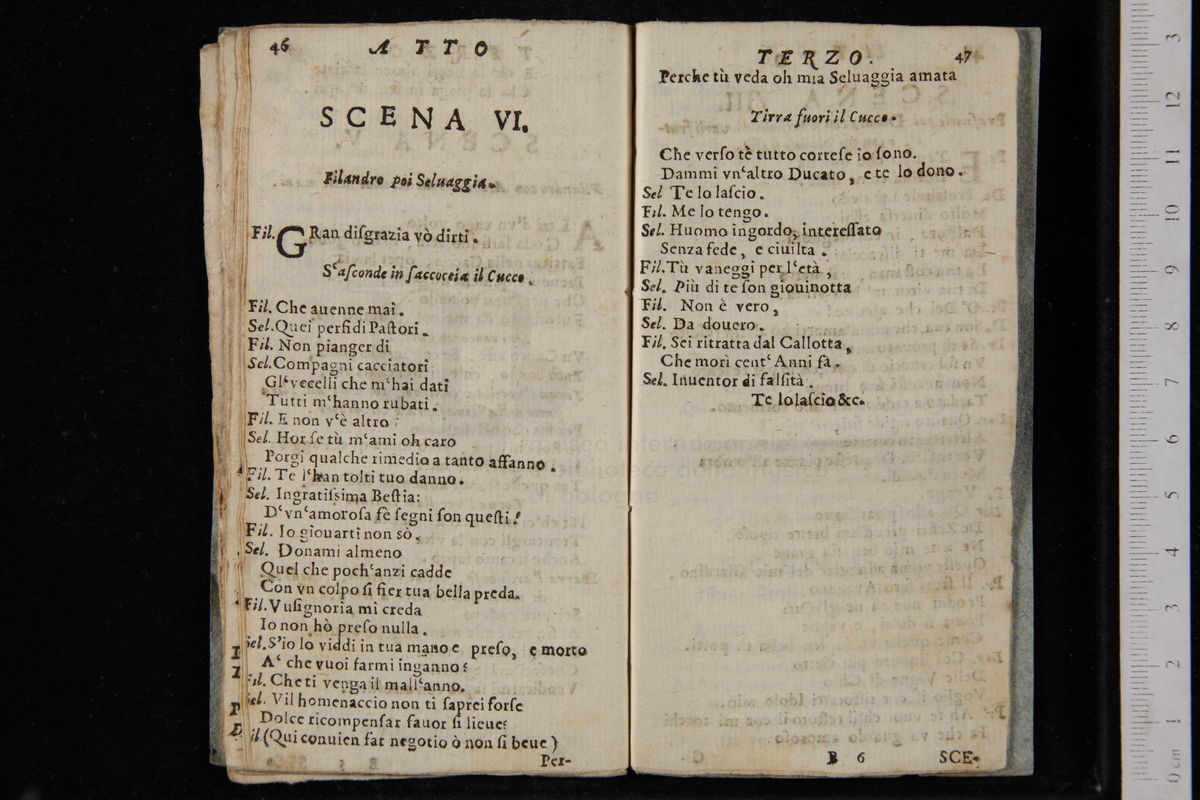 46
ATTO
SCENA VI.
Filandro poi Seluaggia.
Fil. GRan disgrazia vò dirti.
S'asconde in saccoccia il Cucco.
Fil. Che auenne mai.
Sel. Quei perfidi Pastori.
Fil. Non pianger di
Sel. Compagni cacciatori
Gl'vecelli che m'hai dati
Tutti m'hanno rubati.
Fil. E non v'è altro
Sel. Hor se tù m'ami oh caro
Porgi qualche rimedio a tanto affanno.
Fil. Te l'han tolti tuo danno.
Sel. Ingratissima Bestia:
D'vn'amorosa fè segni son questi!
Fil. Io giouarti non sò.
Sel. Donami almeno
Quel che poch'anzi cadde
Con vn colpo sì fier tua bella preda.
Fil. Vusignoria mi creda
Io non hò preso nulla.
Sel. S'io lo viddi in tua mano e preso, e morto
A' che vuoi farmi inganno?
Fil. Che ti venga il mall'anno.
Sel. Vil homenaccio non ti saprei forse
Dolce ricompensar fauor sì lieue?
Fil. (Qui conuien far negotio ò non si beue)
Per-
TERZO.
47
Perche tù veda oh mia Seluaggia amata
Tirra fuori il Cucco.
Che verso tè tutto cortese io sono.
Dammi vn'altro Ducato, e te lo dono.
Sel Te lo lascio.
Fil. Me lo tengo.
Sel. Huomo ingordo, interessato
Senza fede, e ciuilta.
Fil. Tù vaneggi per l'età,
Sel. Più di te son giouinotta
Fil. Non è vero,
Sel. Da douero.
Fil. Sei ritratta dal Callotta,
Che morì cent' Anni fà.
Sel. Inuentor di falsità.
Te lo lascio &c.
B 6
SCE-
0 cm 1 2 3 4 5 6 7 8 9 10 11 12 3